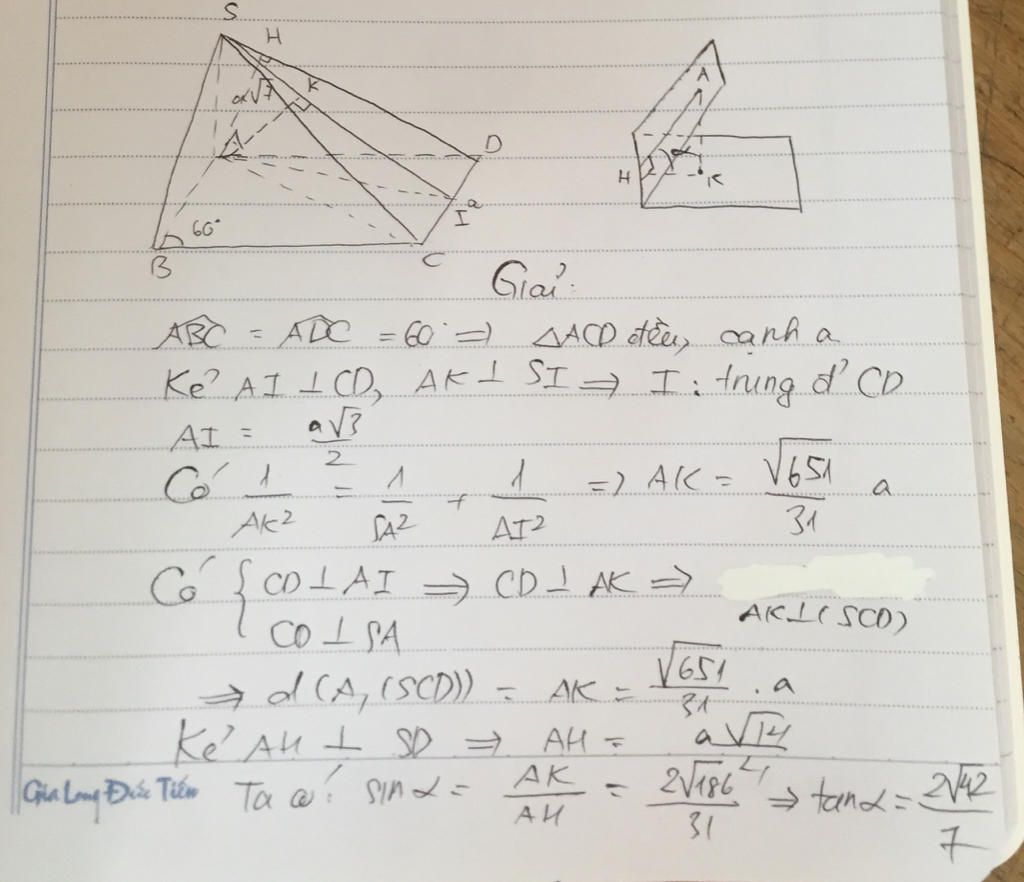 S
H
A
a√7
K
A
D
H
α
K
I
a
60°
B
C
Giải:
ABC = ADC = 60° ⇒ ΔACD đều, cạnh a
Kẻ AI ⊥ CD, AK ⊥ SI ⇒ I : trung đ' CD
AI = a√3/2
Có 1/AK² = 1/SA² + 1/AI² ⇒ AK = √651/31 a
Có { CD ⊥ AI ⇒ CD ⊥ AK ⇒
CD ⊥ SA
AK ⊥ (SCD)
⇒ d(A, (SCD)) = AK = √651/31 . a
Kẻ AH ⊥ SD ⇒ AH = a√14/4
Gia Long Đức Tiến
Ta có: sin α = AK/AH = 2√186/31 ⇒ tan α = 2√42/7